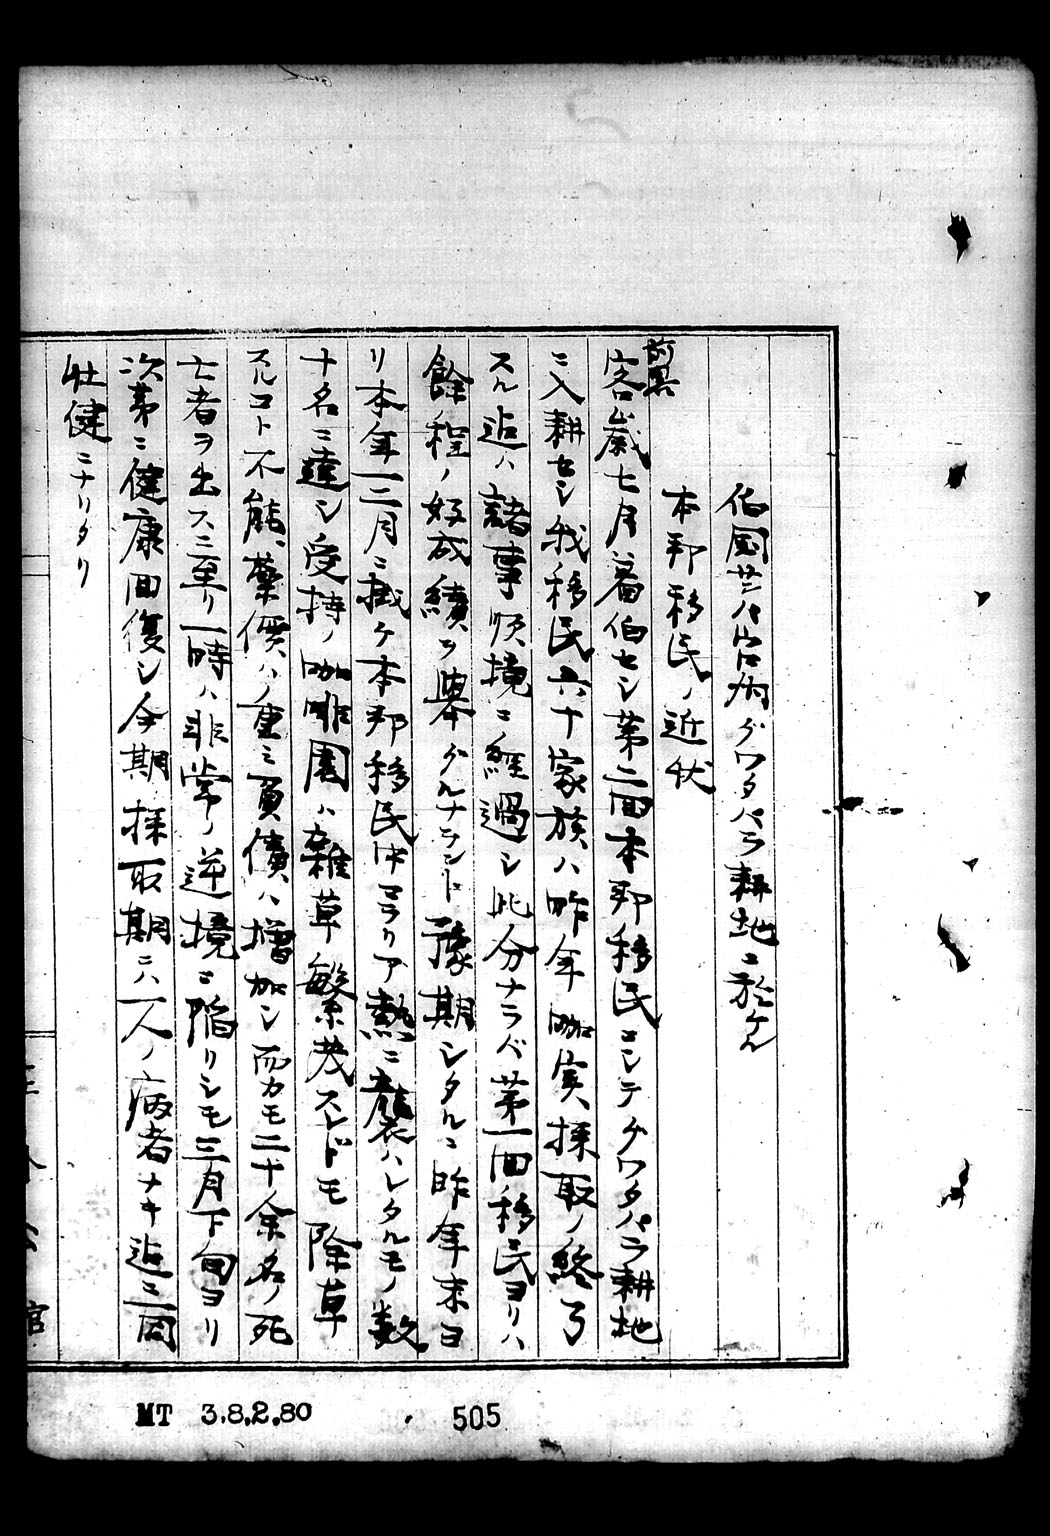 伯国サンパウロ州グワタパラ耕地ニ於ケル
本邦移民ノ近状
前略
客歳七月着伯セシ第二回本邦移民ニシテグワタパラ耕地
ニ入耕セシ我移民六十家族ハ昨年珈実採取ノ終了
スル迄ハ諸事順境ニ経過シ此分ナラバ第一回移民ヨリハ
餘程ノ好成績ヲ挙グルナラント豫期シタルニ昨年末ヨ
リ本年一二月ニ掛ケ本邦移民中マラリア熱ニ襲ハレタルモノ数
十名ニ達シ受持ノ珈琲園ハ雑草繁茂スレドモ除草
スルコト不能、薬價ハ重ミ負債ハ増加シ而カモ二十余名ノ死
亡者ヲ出スニ至リ一時ハ非常ノ逆境ニ陥リシモ三月下旬ヨリ
次第ニ健康回復シ今期採取期ニハ一人ノ病者ナキ迄ニ一同
壮健ニナリタリ
館
MT 3.8.2.80
505